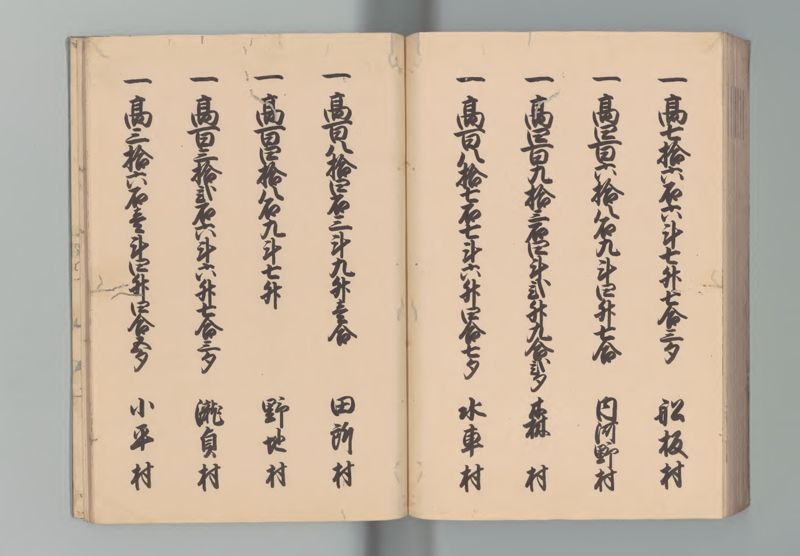 一 高七拾六石六斗七升七合三夕 船板村
一 高四百六拾八石九斗四升七合 内河野村
一 高四百九拾三石四斗弐升九合弐夕 森村
一 高百八拾七石七斗六升四合七夕 水車村
一 高百八拾四石三斗九升壱合 田所村
一 高百四拾八石九斗七升 野地村
一 高百三拾弐石六斗六升七合三夕 瀧貞村
一 高三拾六石壱斗四升四合五夕 小平村